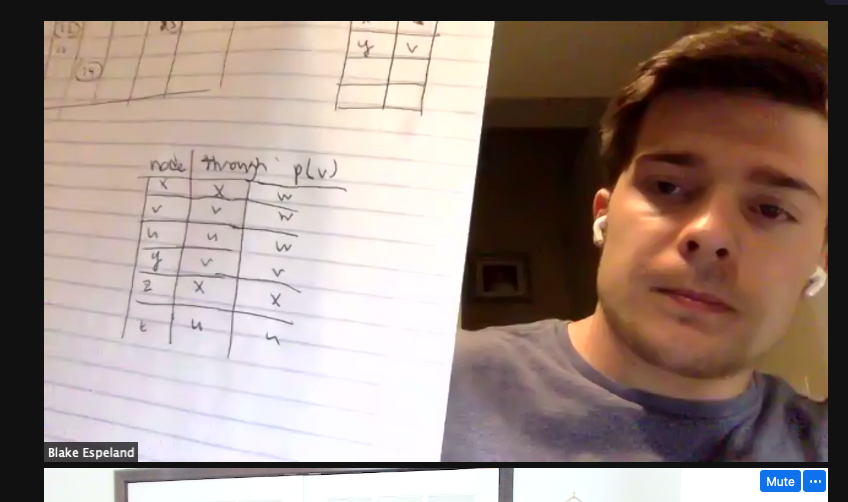 y v
14
node through p(v)
x x w
v v w
u u w
y v v
z x x
t u u
Blake Espeland
Mute ...